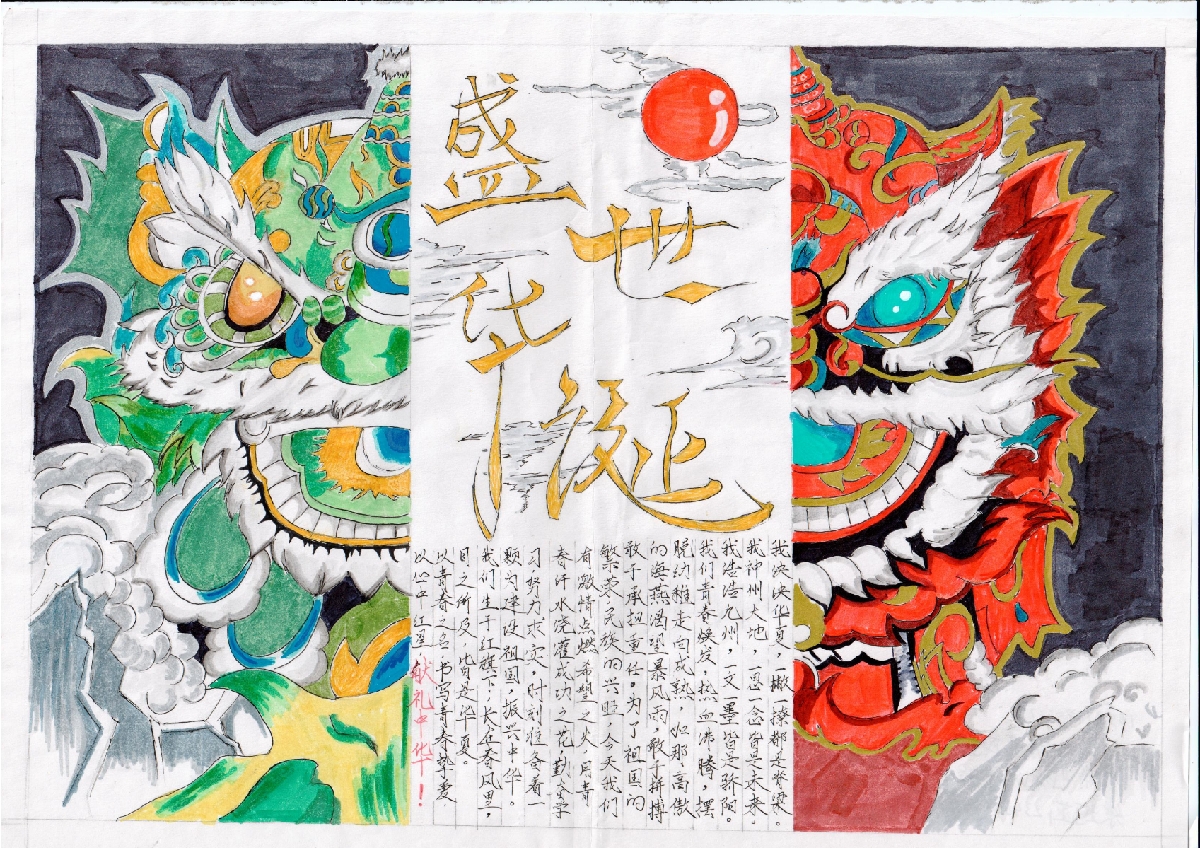 盛世
华诞
我泱泱华夏,一撇一捺都是脊梁。
我神州大地,一思一念皆是未来。
我浩浩九州,一文一墨皆是骄阳。
我们青春焕发,热血沸腾,摆
脱幼稚走向成熟,如那高傲
的海燕渴望暴风雨,敢于拼搏
敢于承担重任。为了祖国的
繁荣,民族的兴旺,今天我们
有激情点燃希望之火,用青
春汗水浇灌成功之花,勤奋学
习努力求实,时刻准备着一
为建设祖国,振兴中华。
我们生于红旗下,长在春风里,
目之所及,皆是华夏。
以青春之名书写青春挚爱
以中红星献礼中华!